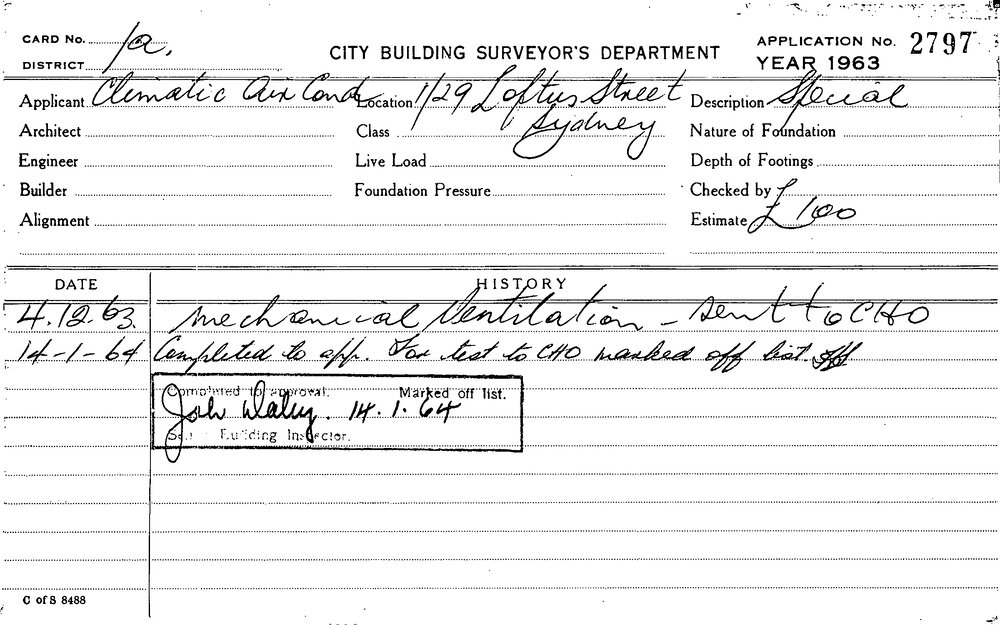 CARD No. 1a. CITY BUILDING SURVEYOR'S DEPARTMENT APPLICATION No. 2797
DISTRICT YEAR 1963
Applicant Climatic Air Cond Location 1/29 Loftus Street Description Special
Architect Class Sydney Nature of Foundation
Engineer Live Load Depth of Footings
Builder Foundation Pressure Checked by
Alignment Estimate £100
DATE HISTORY
4.12.63. Mechanical Ventilation - sent to CHO
14-1-64 Completed to app. For test to CHO marked off list.
Completed to approval. Marked off list.
14.1.64
Building Inspector.
C of S 8488